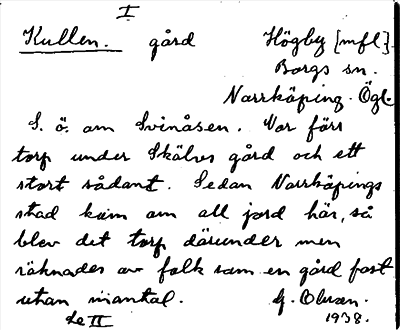 I
Kullen. gård Högby [mfl].
Borgs sn.
Norrköping. Ögl.
S. ö. om Svinåsen. Var förr
torp under Skälvs gård och ett
stort sådant. Sedan Norrköpings
stad kom om all jord här, så
blev det torp därunder men
räknades av folk som en gård fast
utan mantal. G.
Se II 1938.